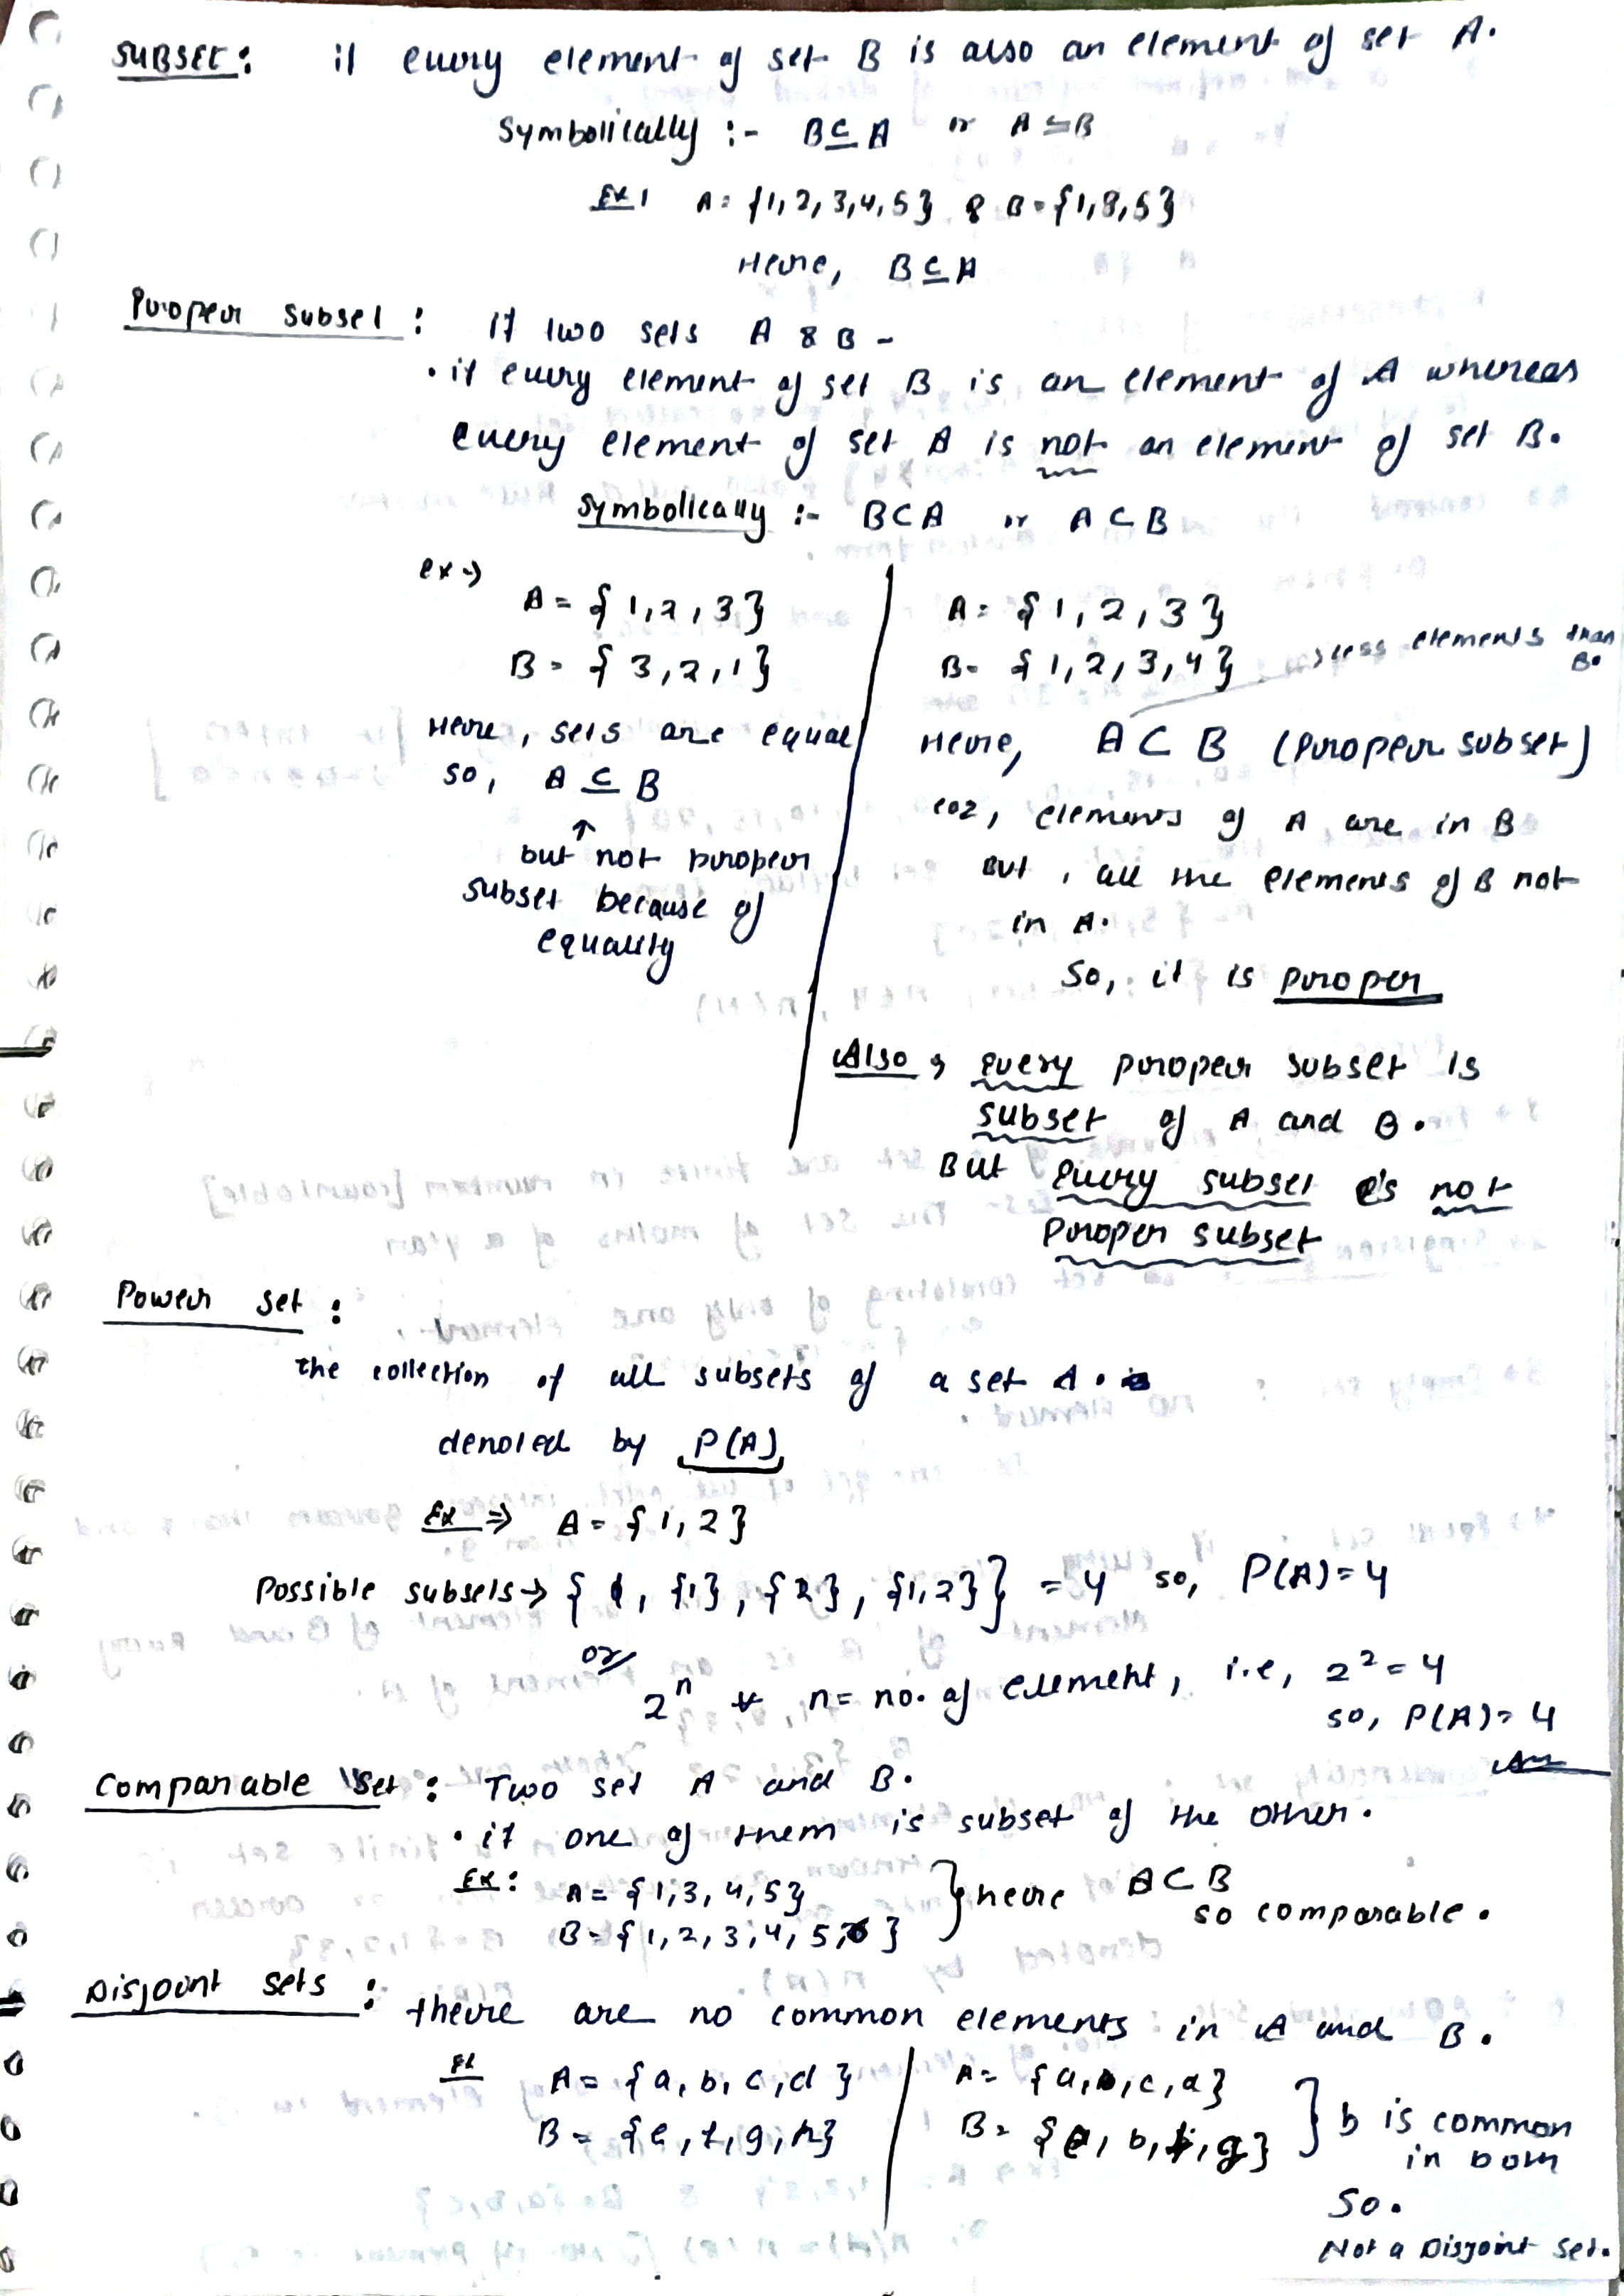 SUBSET: if every element of set B is also an element of set A.
Symbolically :- B⊆A or A⊆B
Ex1 A= {1,2,3,4,5} & B={1,8,5}
Here, B⊆A
Proper subset: if two sets A & B -
• if every element of set B is an element of A whereas
every element of set A is not an element of set B.
Symbolically :- B⊂A or A⊂B
ex→
A = {1,2,3}
B = {3,2,1}
Here, sets are equal
so, A ⊆ B
↑
but not proper
subset because of
equality
A= {1,2,3}
B= {1,2,3,4} → less elements than B.
Here, A⊂B (proper subset)
coz, elements of A are in B
But, all the elements of B not
in A.
So, it is proper
Also, every proper subset is
subset of A and B.
But every subset is not
Proper subset
Power set:
the collection of all subsets of a set A.
denoted by P(A)
Ex ⇒ A = {1,2}
Possible subsets→ {ϕ, {1}, {2}, {1,2}} = 4 so, P(A)=4
or
2ⁿ ∀ n= no. of element, i.e, 2²=4
so, P(A)=4
Ans
Comparable Set: Two set A and B.
• if one of them is subset of the other.
Ex: A= {1,3,4,5}
B= {1,2,3,4,5,6}
} here A⊂B
so comparable.
Disjoint sets: there are no common elements in A and B.
Ex A= {a,b,c,d}
B= {e,f,g,h}
A= {a,b,c,d}
B= {e,b,f,g}
} b is common
in both
So.
Not a Disjoint set.